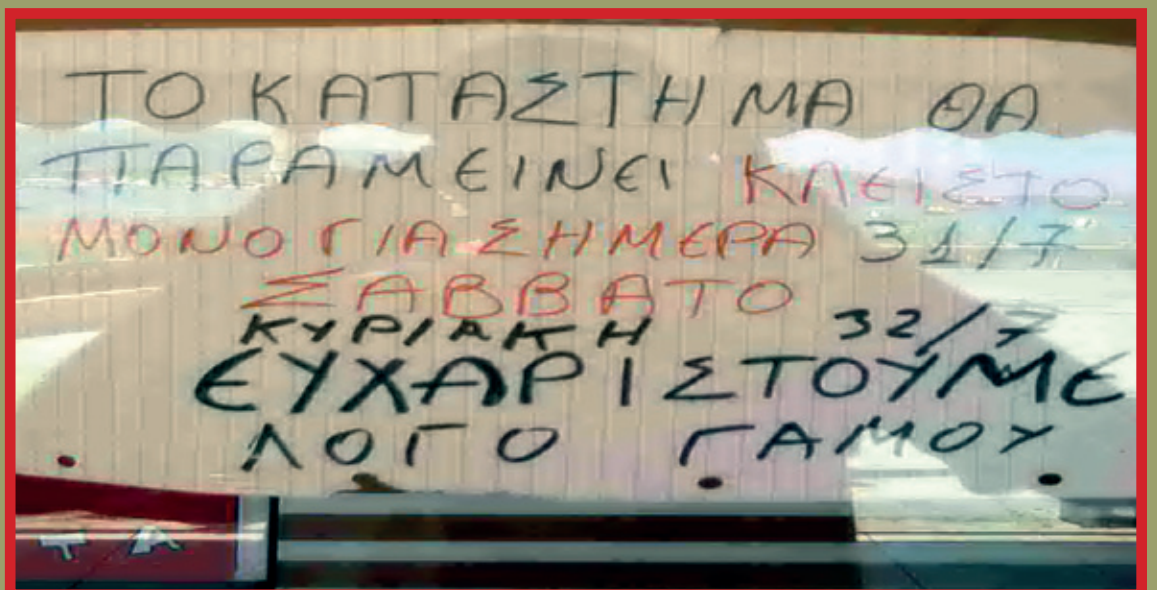 ΤΟ ΚΑΤΑΣΤΗΜΑ ΘΑ
ΠΑΡΑΜΕΙΝΕΙ ΚΛΕΙΣΤΟ
ΜΟΝΟ ΓΙΑ ΣΗΜΕΡΑ 31/7
ΣΑΒΒΑΤΟ
ΚΥΡΙΑΚΗ 32/7
ΕΥΧΑΡΙΣΤΟΥΜΕ
ΛΟΓΟ ΓΑΜΟΥ
ΤΑ